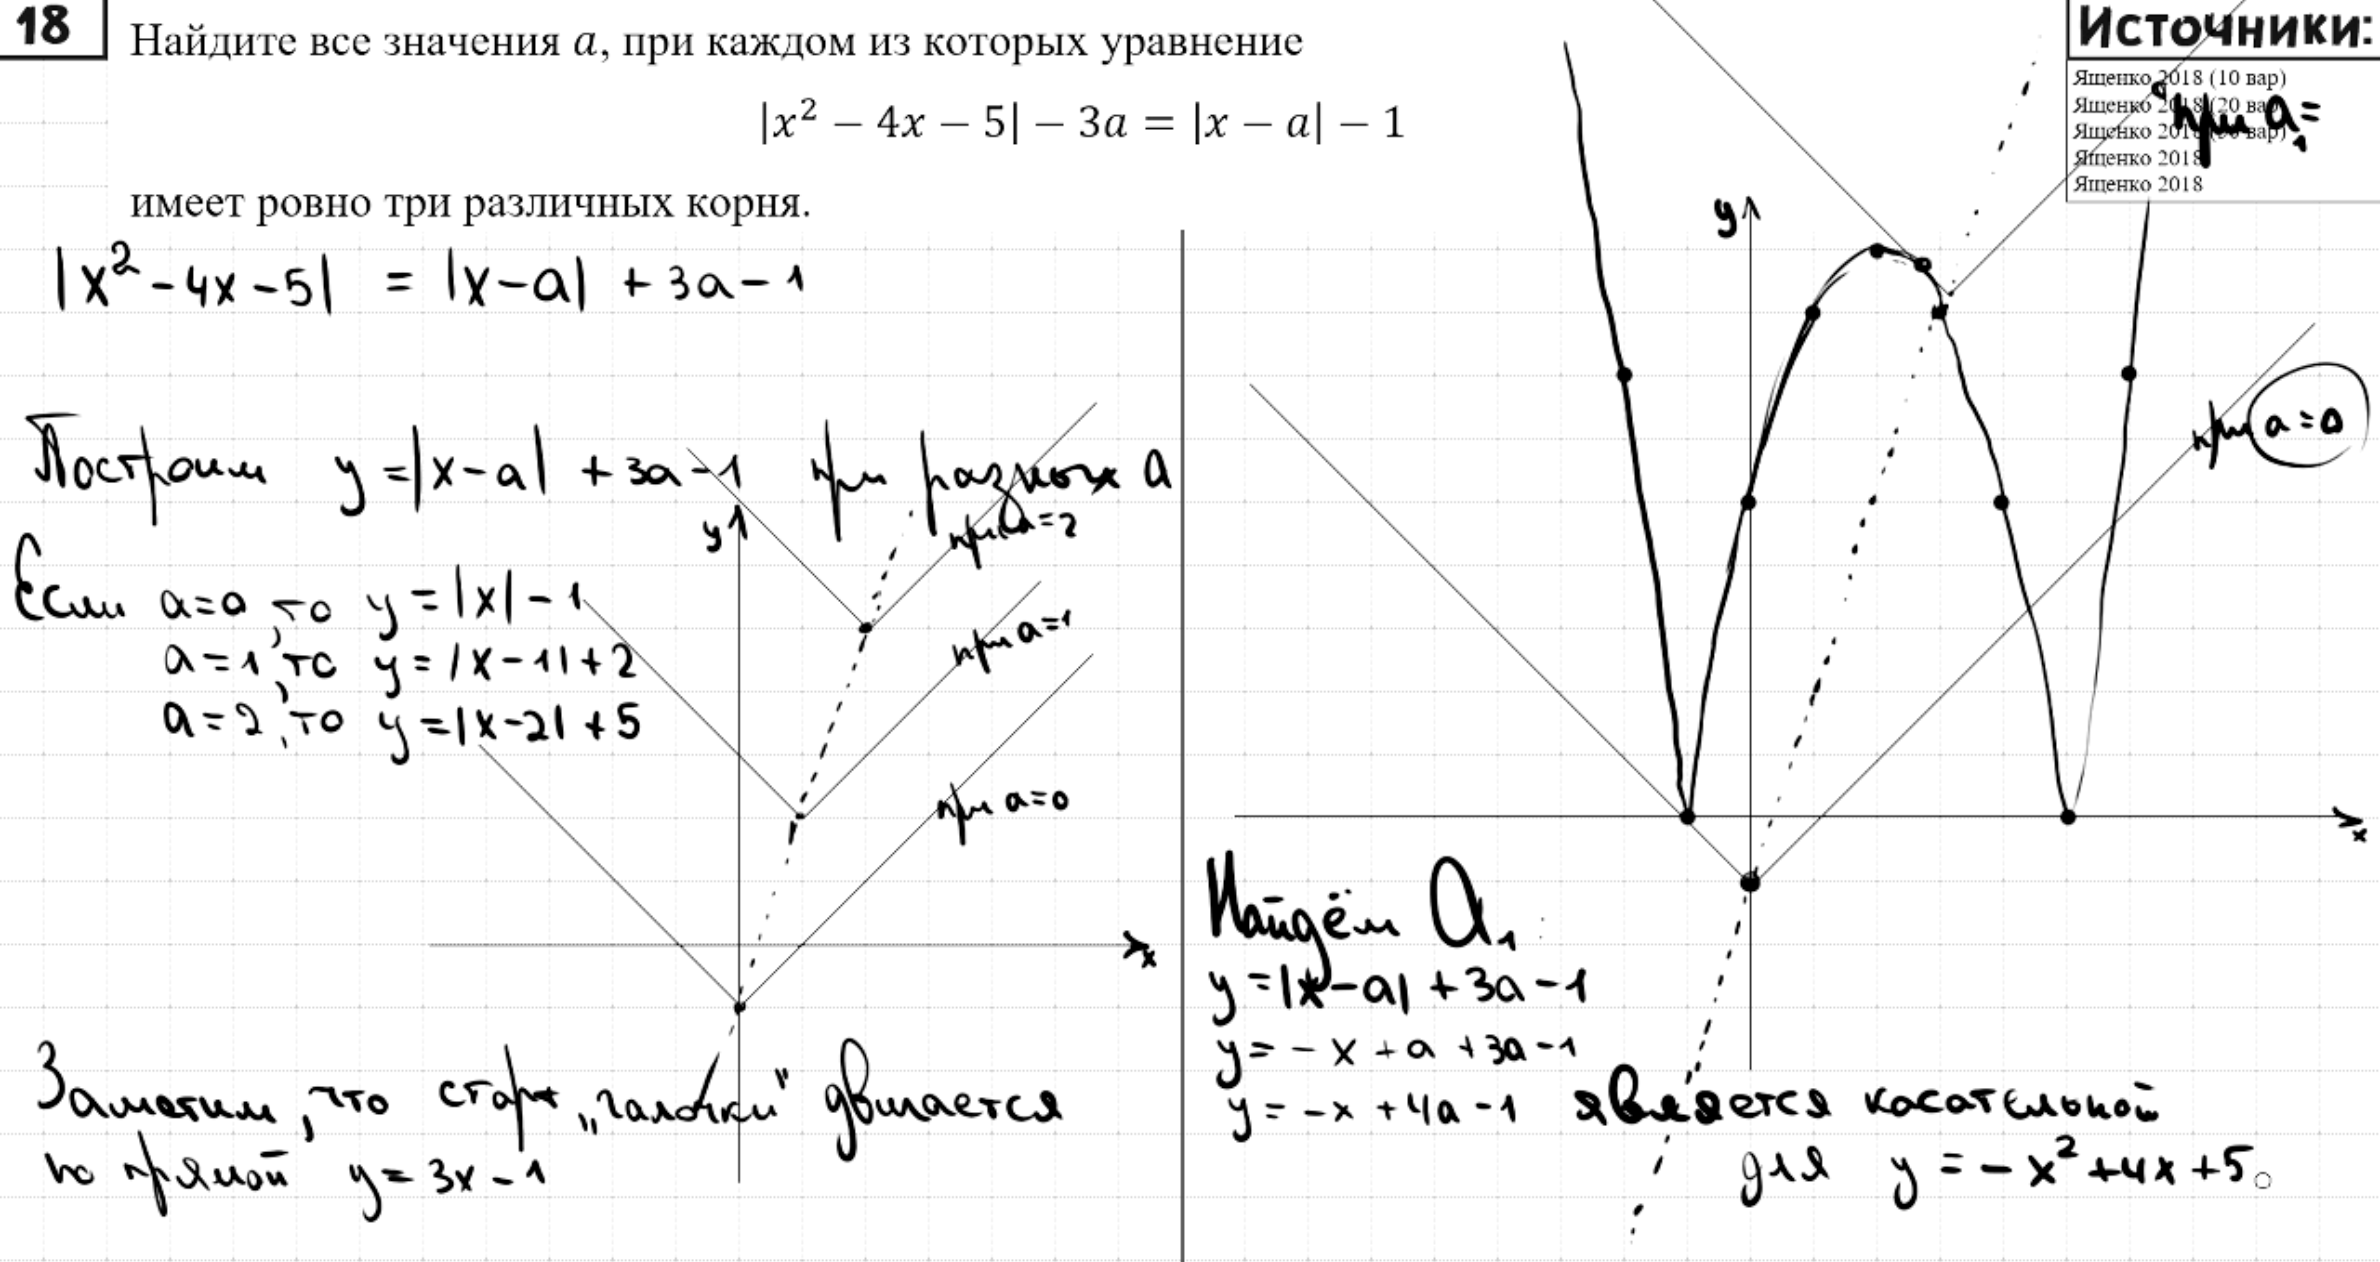 18
Найдите все значения a, при каждом из которых уравнение
|x² − 4x − 5| − 3a = |x − a| − 1
имеет ровно три различных корня.
Источники:
Ященко 2018 (10 вар)
Ященко 2018 (20 вар)
Ященко 2018 (36 вар)
Ященко 2018
Ященко 2018
при a₁=
|x² - 4x - 5| = |x - a| + 3a - 1
Построим y = |x - a| + 3a - 1 при разных a
Если a=0, то y = |x| - 1
a=1, то y = |x - 1| + 2
a=2, то y = |x - 2| + 5
y
при a=2
при a=1
при a=0
x
Заметим, что старт "галочки" двигается
по прямой y = 3x - 1
y
при a=0
x
Найдём a₁
y = |x - a| + 3a - 1
y = - x + a + 3a - 1
y = - x + 4a - 1 является касательной
для y = - x² + 4x + 5